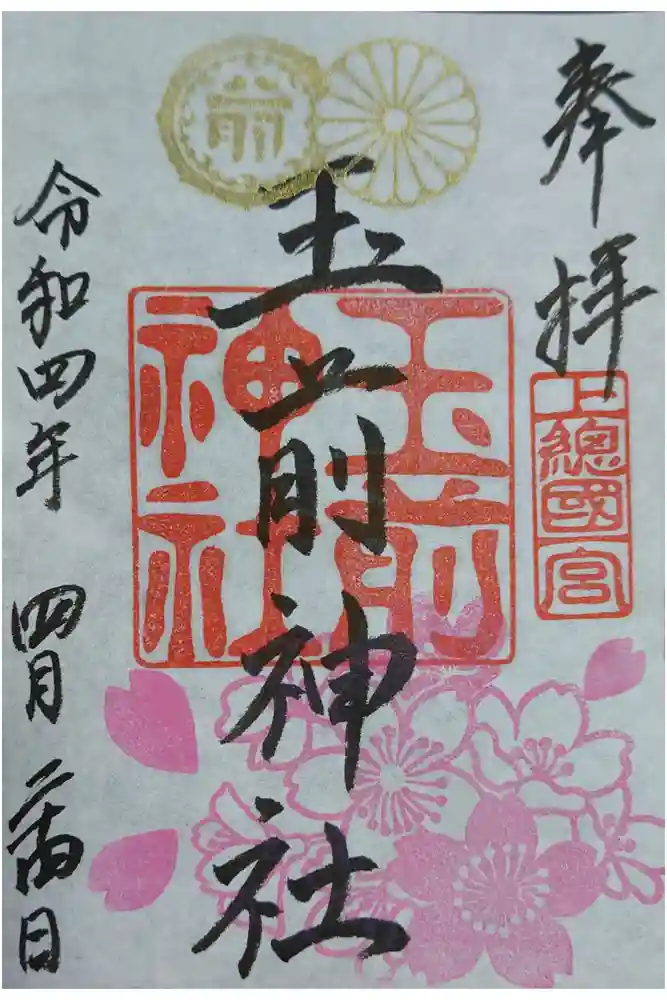 奉拝
上總國一宮
玉前神社
玉前神社
令和四年 四月 二十四日